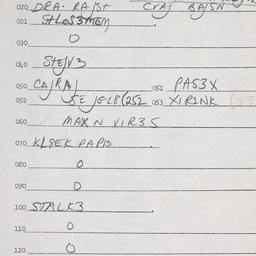 020 DRA. RAJSt CVAJ BAJSN
021 StLOS3MEM
030 0
040 StEJV3
050 CAJRAJ 051 PAS3X
052 SE JGL8(252 053 XIRINK
060 MAX N VIR3S
070 KL8EK PAPIS
080 0
090 0
100 STALK3
110 0
120 0